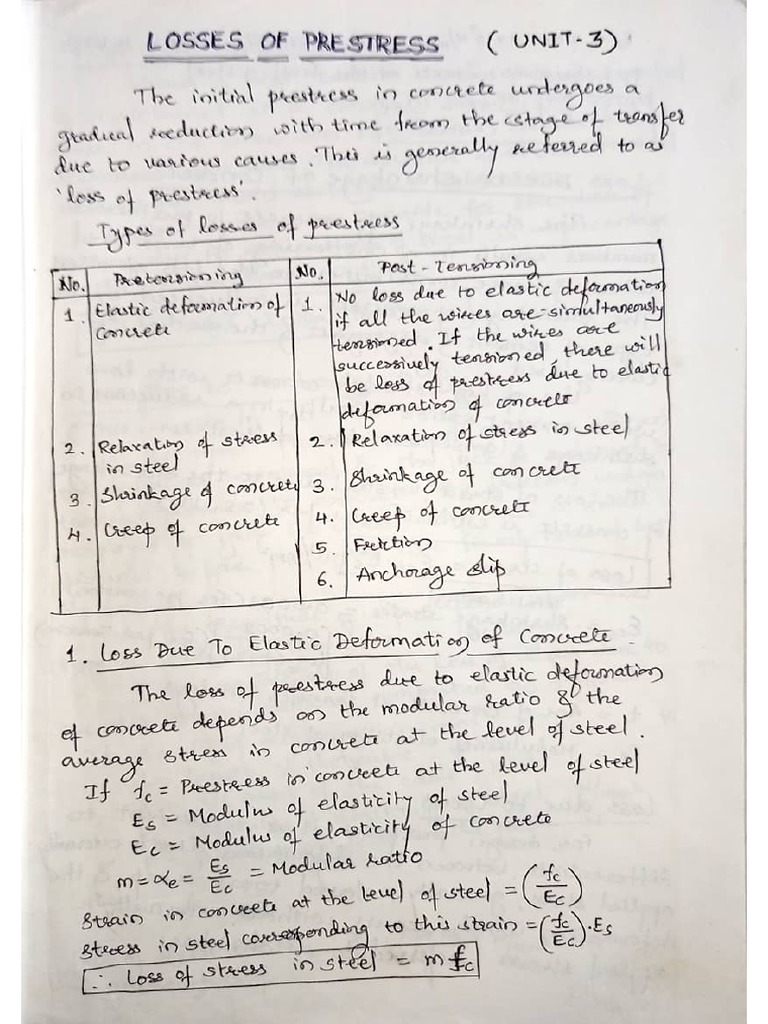 LOSSES OF PRESTRESS (UNIT-3)
The initial prestress in concrete undergoes a
gradual reduction with time from the stage of transfer
due to various causes. This is generally referred to as
'loss of prestress'.
Types of losses of prestress
No. Pretensioning No. Post-Tensioning
1. Elastic deformation of concrete 1. No loss due to elastic deformation
if all the wires are simultaneously
tensioned. If the wires are
successively tensioned, there will
be loss of prestress due to elastic
deformation of concrete
2. Relaxation of stress in steel 2. Relaxation of stress in steel
3. Shrinkage of concrete 3. Shrinkage of concrete
4. Creep of concrete 4. Creep of concrete
5. Friction
6. Anchorage slip
1. Loss Due To Elastic Deformation of Concrete
The loss of prestress due to elastic deformation
of concrete depends on the modular ratio & the
average stress in concrete at the level of steel.
If fc = Prestress in concrete at the level of steel
Es = Modulus of elasticity of steel
Ec = Modulus of elasticity of concrete
m = αe = Es/Ec = Modular ratio
Strain in concrete at the level of steel = (fc/Ec)
Stress in steel corresponding to this strain = (fc/Ec).Es
∴ Loss of stress in steel = m fc